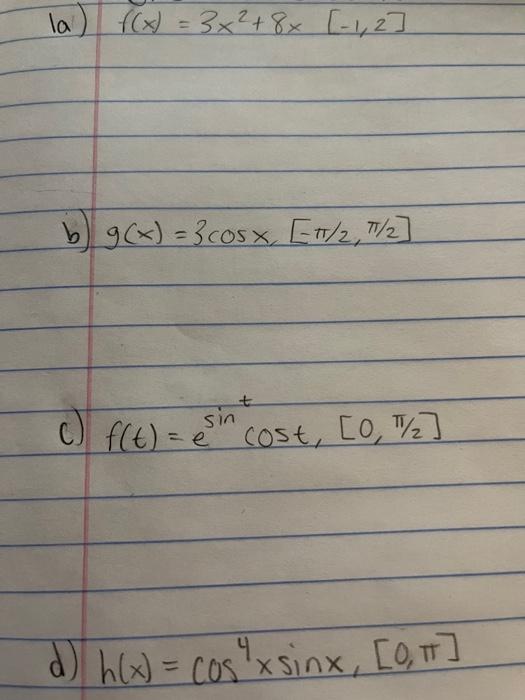 1a) f(x) = 3x²+8x [-1,2]
b) g(x) = 3cosx, [-π/2, π/2]
c) f(t) = e^sin^t cost, [0, π/2]
d) h(x) = cos⁴xsinx, [0,π]